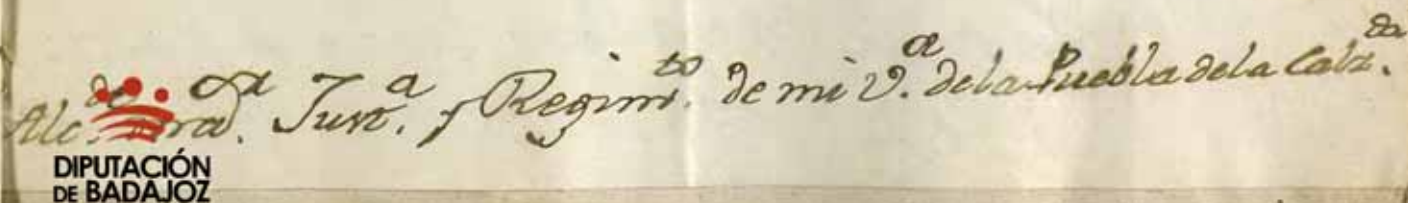 Alc.de Just.a y Regim.to de mi V.a dela Puebla dela Calz.da
DIPUTACIÓN
DE BADAJOZ